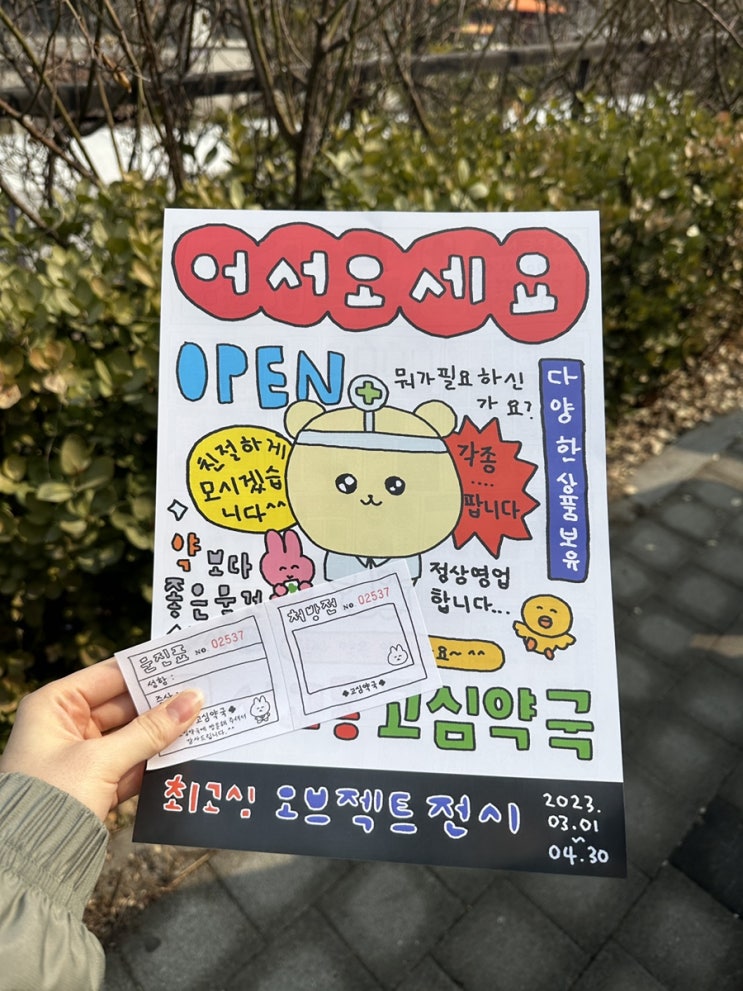 어서오세요
OPEN
뭐가필요하신
가요?
다양한상품보유
친절하게
모시겠습
니다^^
각종
....
팝니다
약보다
좋은물건
정상영업
합니다...
요~^^
문진표 NO 02537
성함:
증상:
고심약국
감사드립니다.^^
처방전 NO 02537
◆고심약국◆
고심약국
최고심 오브젝트 전시
2023.
03.01
~
04.30